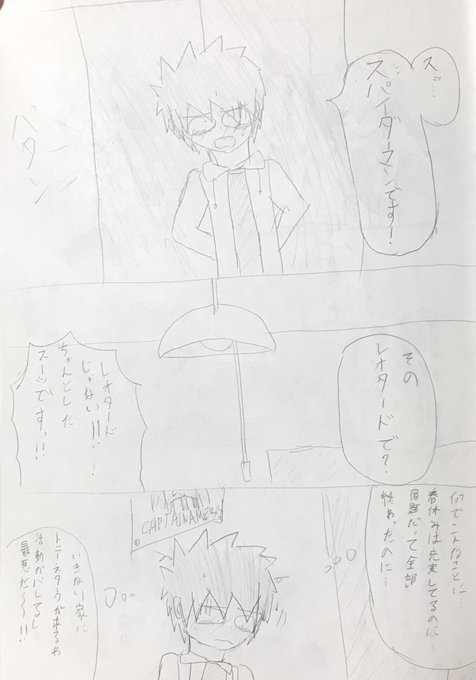 ス…
スパイダーマンです!
パタン
その
レオタードで?
レオタード
じゃない!!
ちゃんとした
スーツですっ!!
何でこんなことに…
春休みは充実してるのに
宿題だって全部
終わったのに…
CAPTAINAMER
いきなり家に
トニースタークが来るわ
活動がバレてるし
最悪だく〜!!